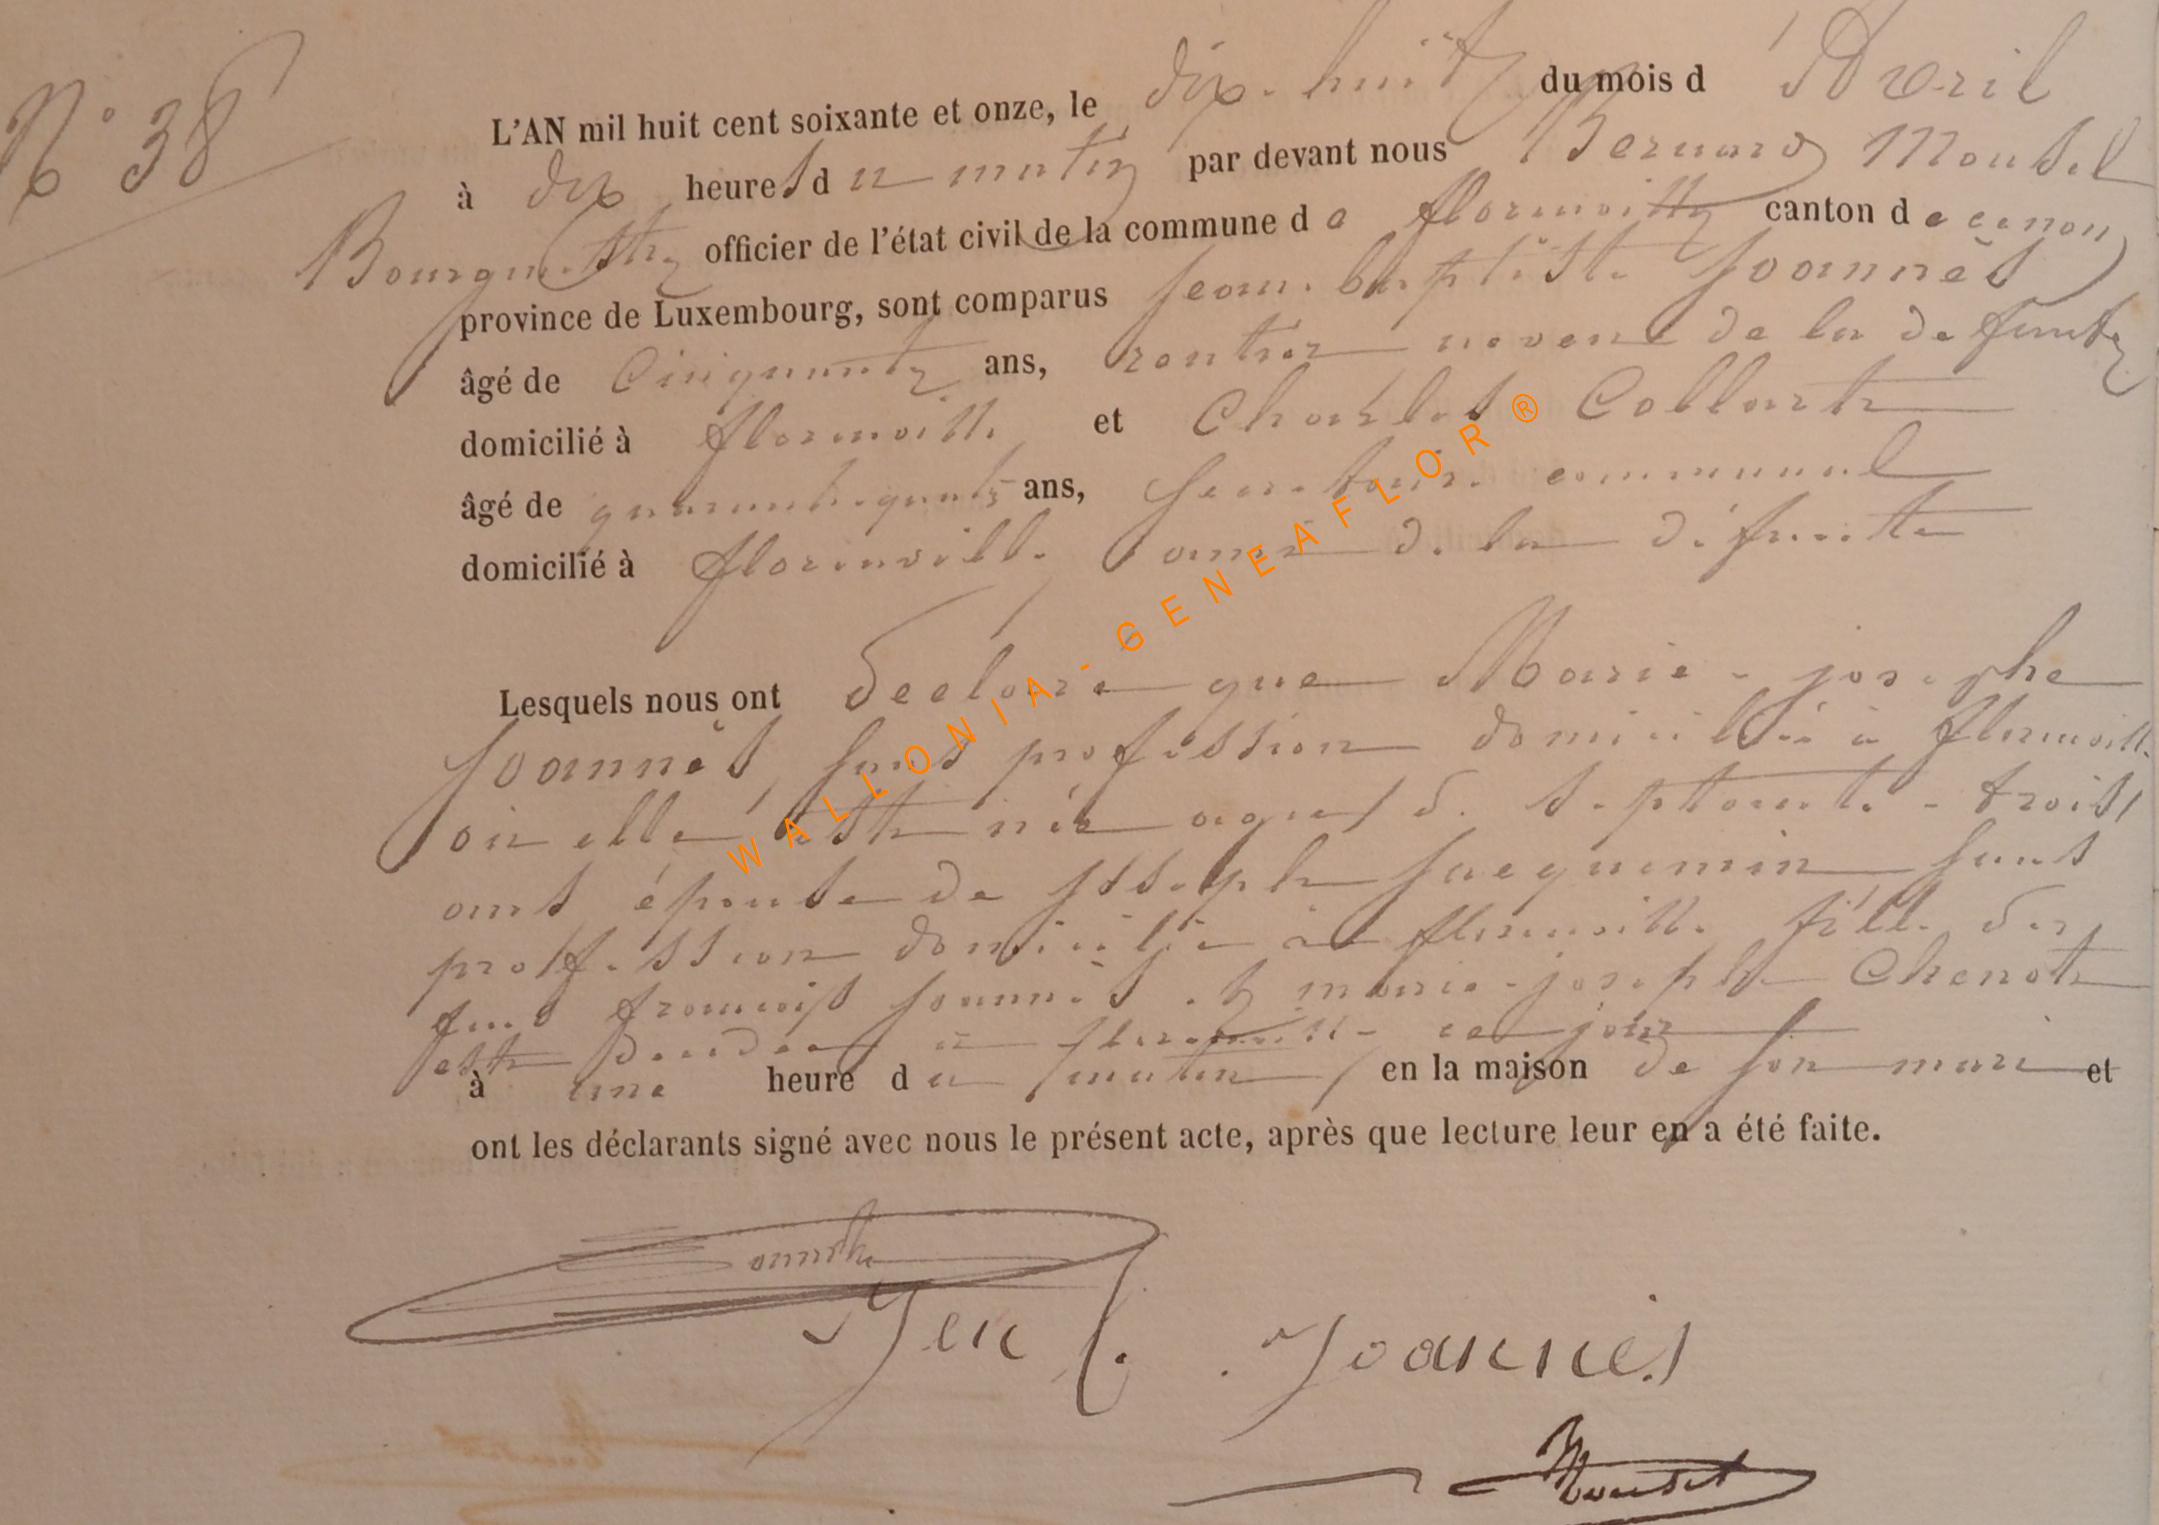 N° 38
L'AN mil huit cent soixante et onze, le dix-huit du mois d'Avril
à dix heures du matin par devant nous Bernard Mousel
Bourgmestre officier de l'état civil de la commune de florenville canton de ce nom
province de Luxembourg, sont comparus jean-baptiste Joannès
âgé de Cinquante ans, rentier neveu de la defunte
domicilié à florenville et Charles Collart
âgé de quarante-quatre ans, secretaire communal
domicilié à florenville ami de la défunte
Lesquels nous ont declaré que Marie-josephe
Joannès, sans profession domiciliée à florenville
où elle est née agée de septante-trois
ans, épouse de joseph jacquemin sans
profession domicilié à florenville fille de
feus françois joannès et marie-josephe Chenot
est décédée à florenville ce jour
à une heure du matin, en la maison de son mari et
ont les déclarants signé avec nous le présent acte, après que lecture leur en a été faite.
Joannès
Mousel
WALLONIA-GENEAFLOR®